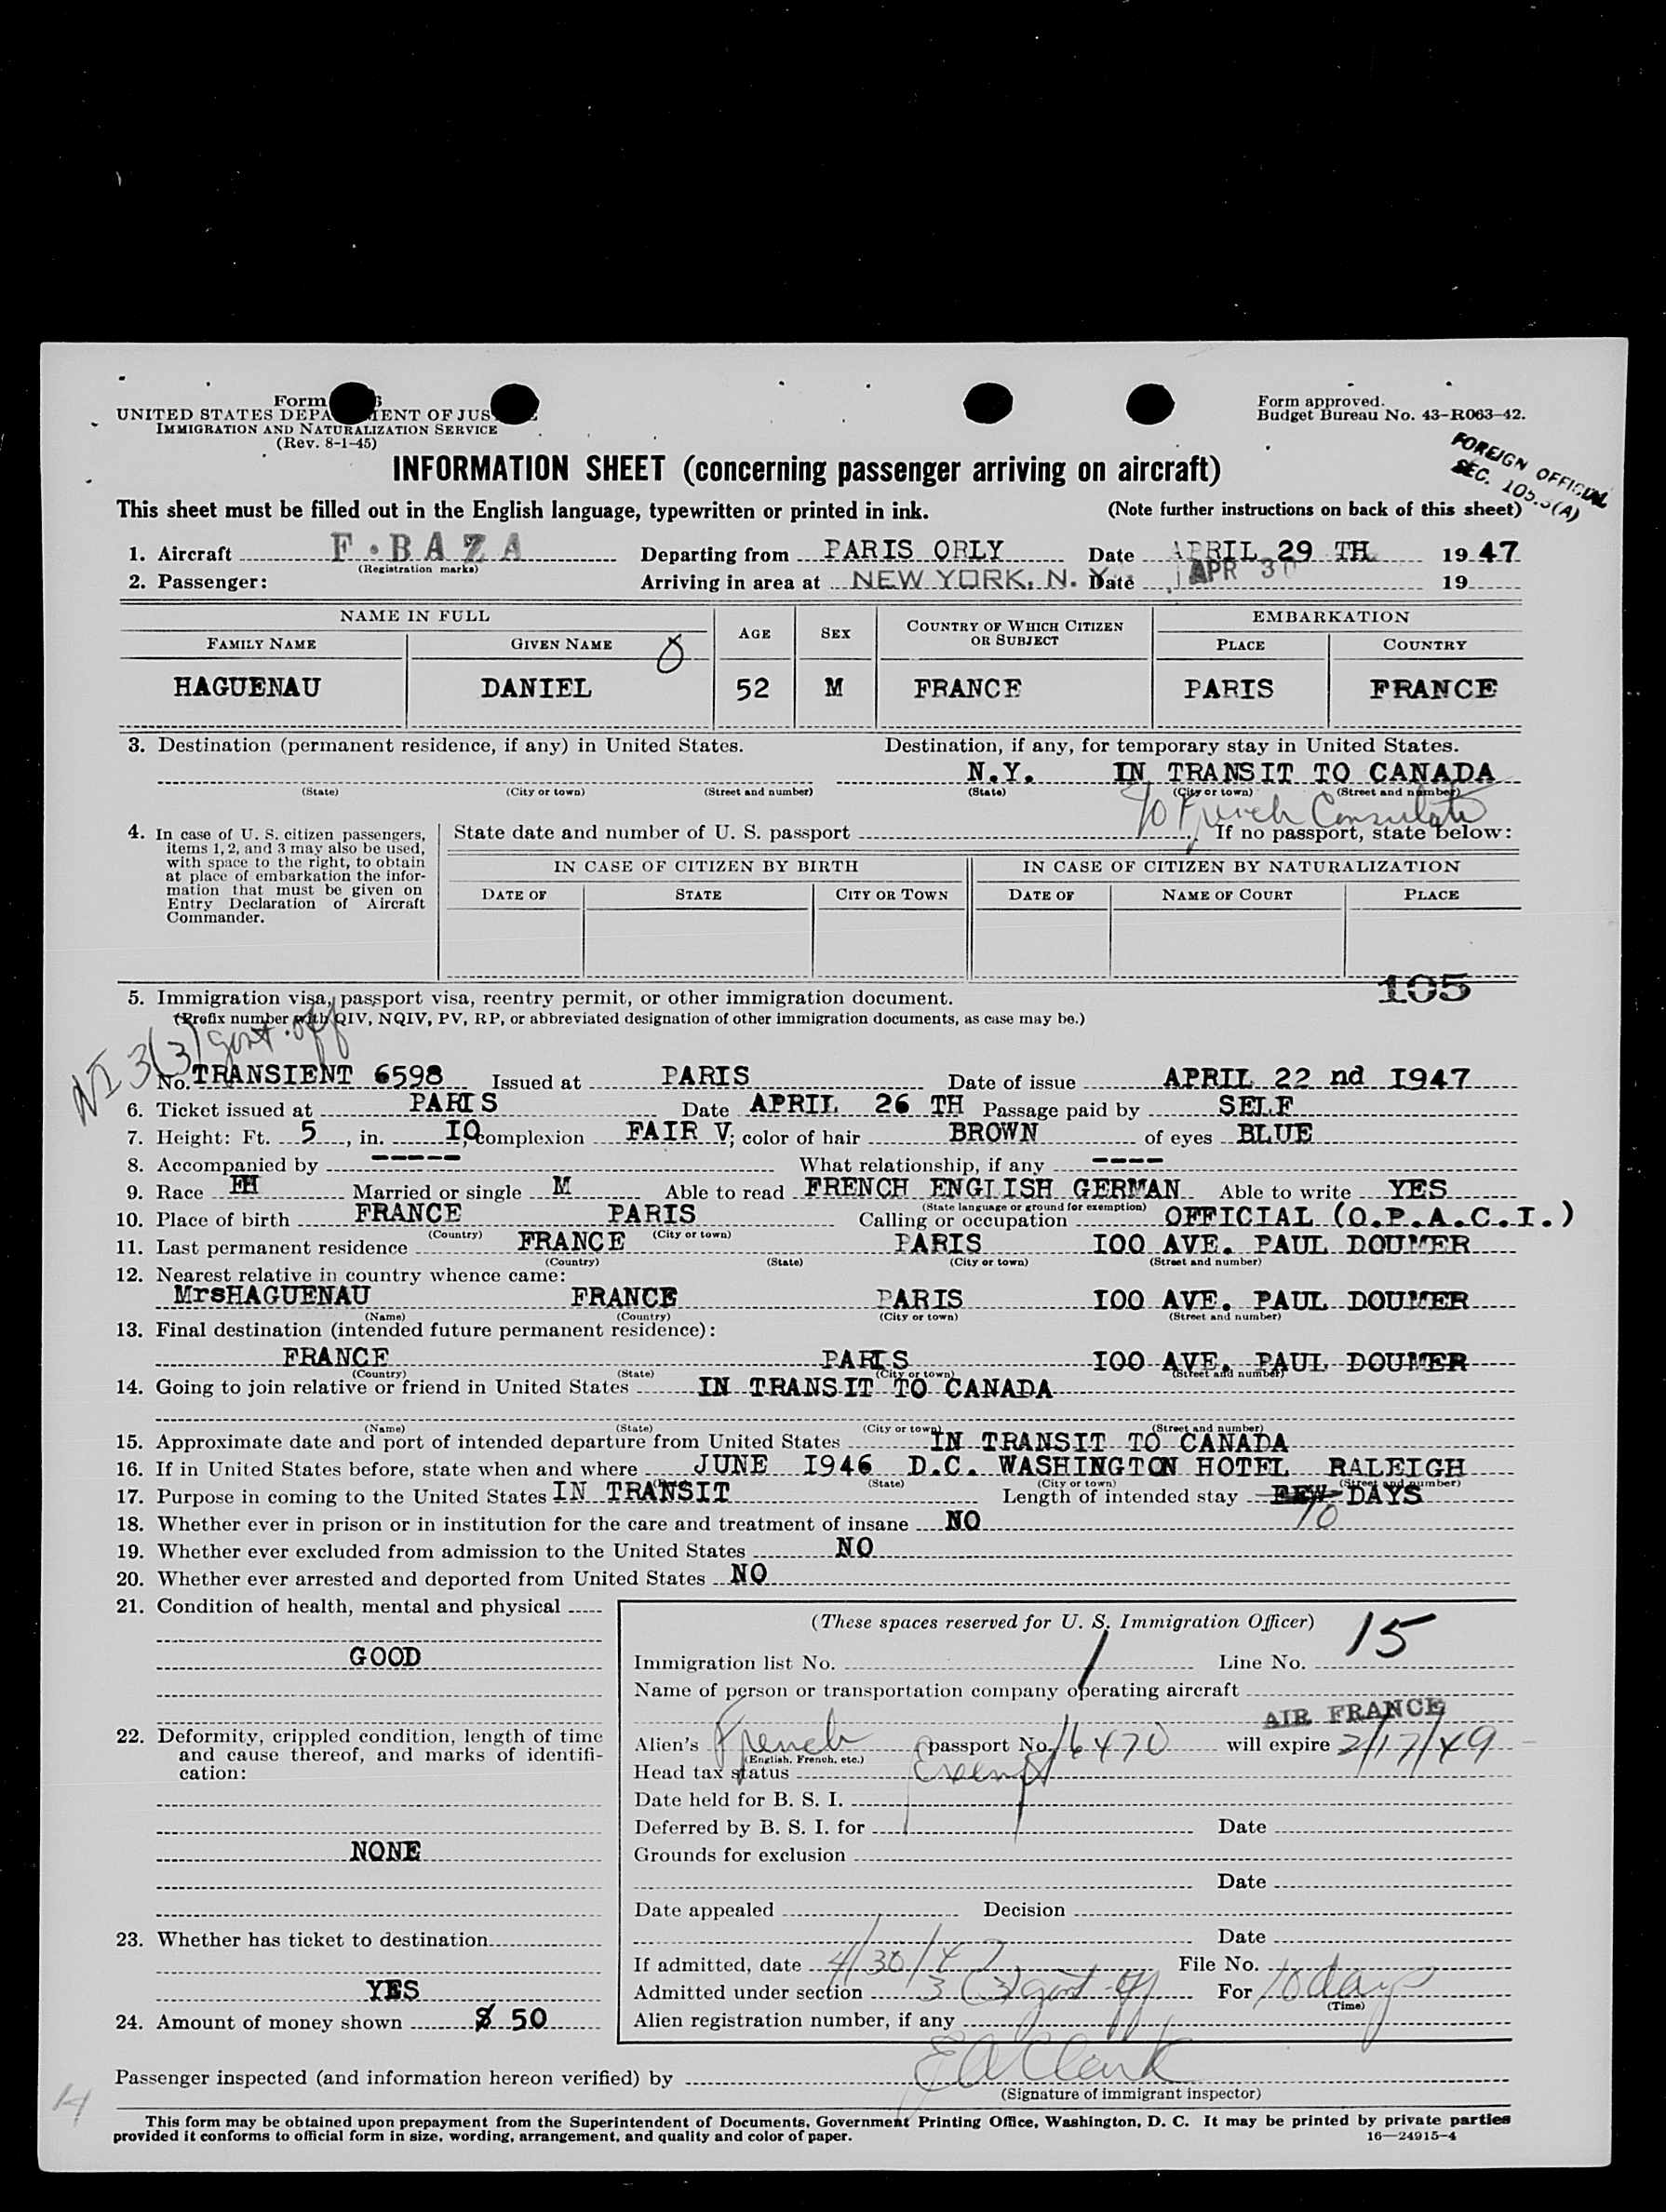 Form
UNITED STATES DEPA ENT OF JUS
IMMIGRATION AND NATURALIZATION SERVICE
(Rev. 8-1-45)
Form approved.
Budget Bureau No. 43-R063-42.
FOREIGN OFFICIAL
SEC. 105.3(A)
INFORMATION SHEET (concerning passenger arriving on aircraft)
This sheet must be filled out in the English language, typewritten or printed in ink. (Note further instructions on back of this sheet)
1. Aircraft F.BAZA Departing from PARIS ORLY Date APRIL 29 TH 1947
(Registration marks)
2. Passenger: Arriving in area at NEW YORK, N. Y. Date APR 30 19
NAME IN FULL AGE SEX COUNTRY OF WHICH CITIZEN OR SUBJECT EMBARKATION
FAMILY NAME GIVEN NAME PLACE COUNTRY
HAGUENAU DANIEL 52 M FRANCE PARIS FRANCE
3. Destination (permanent residence, if any) in United States. Destination, if any, for temporary stay in United States.
N.Y. IN TRANSIT TO CANADA
(State) (City or town) (Street and number) (State) (City or town) (Street and number)
% French Consulate
4. In case of U. S. citizen passengers, items 1, 2, and 3 may also be used, with space to the right, to obtain at place of embarkation the information that must be given on Entry Declaration of Aircraft Commander.
State date and number of U. S. passport If no passport, state below:
IN CASE OF CITIZEN BY BIRTH IN CASE OF CITIZEN BY NATURALIZATION
DATE OF STATE CITY OR TOWN DATE OF NAME OF COURT PLACE
105
5. Immigration visa, passport visa, reentry permit, or other immigration document.
(Prefix number with QIV, NQIV, PV, RP, or abbreviated designation of other immigration documents, as case may be.)
NI 3(3) govt. off
No. TRANSIENT 6598 Issued at PARIS Date of issue APRIL 22 nd I947
6. Ticket issued at PARIS Date APRIL 26 TH Passage paid by SELF
7. Height: Ft. 5, in. IO, complexion FAIR V; color of hair BROWN of eyes BLUE
8. Accompanied by ----- What relationship, if any ----
9. Race Married or single M Able to read FRENCH ENGLISH GERMAN Able to write YES
(State language or ground for exemption)
10. Place of birth FRANCE PARIS Calling or occupation OFFICIAL (O.P.A.C.I.)
(Country) (City or town)
11. Last permanent residence FRANCE PARIS IOO AVE. PAUL DOUMER
(Country) (State) (City or town) (Street and number)
12. Nearest relative in country whence came:
MrsHAGUENAU FRANCE PARIS IOO AVE. PAUL DOUMER
(Name) (Country) (City or town) (Street and number)
13. Final destination (intended future permanent residence):
FRANCE PARIS IOO AVE. PAUL DOUMER
(Country) (State) (City or town) (Street and number)
14. Going to join relative or friend in United States IN TRANSIT TO CANADA
(Name) (State) (City or town) (Street and number)
15. Approximate date and port of intended departure from United States IN TRANSIT TO CANADA
16. If in United States before, state when and where JUNE I946 D.C. WASHINGTON HOTEL RALEIGH
(State) (City or town) (Street and number)
17. Purpose in coming to the United States IN TRANSIT Length of intended stay FEW DAYS
10
18. Whether ever in prison or in institution for the care and treatment of insane NO
19. Whether ever excluded from admission to the United States NO
20. Whether ever arrested and deported from United States NO
21. Condition of health, mental and physical
GOOD
22. Deformity, crippled condition, length of time and cause thereof, and marks of identification:
NONE
23. Whether has ticket to destination
YES
24. Amount of money shown $ 50
(These spaces reserved for U. S. Immigration Officer)
Immigration list No. 1 Line No. 15
Name of person or transportation company operating aircraft
AIR FRANCE
Alien's French passport No. 16470 will expire 2/17/49
(English, French, etc.)
Head tax status Exempt
Date held for B. S. I.
Deferred by B. S. I. for Date
Grounds for exclusion
Date
Date appealed Decision
Date
If admitted, date 4/30/47 File No.
Admitted under section 3(3) govt. off For 10 days
(Time)
Alien registration number, if any
Passenger inspected (and information hereon verified) by E A Clark
(Signature of immigrant inspector)
This form may be obtained upon prepayment from the Superintendent of Documents, Government Printing Office, Washington, D. C. It may be printed by private parties
provided it conforms to official form in size, wording, arrangement, and quality and color of paper. 16—24915-4